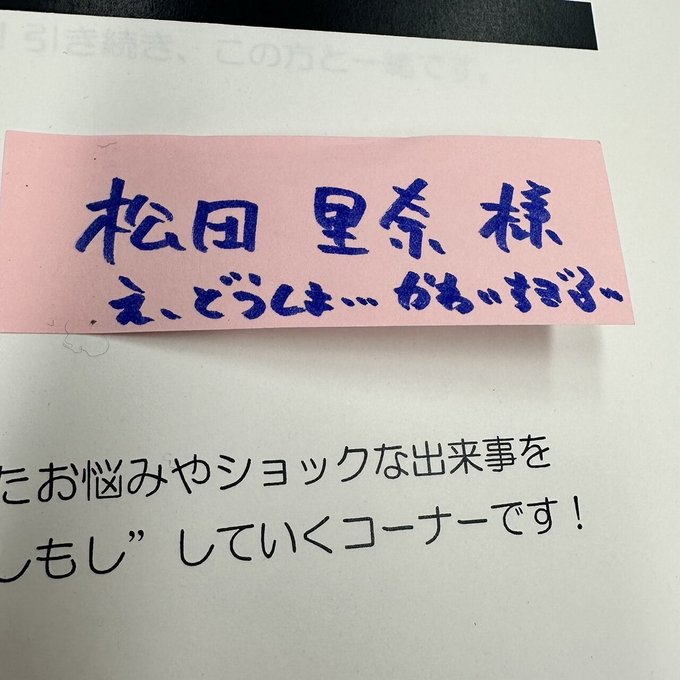 引き続き、この方と一緒です。
松田 里奈 様
え、どうしま… かわいすぎる…
たお悩みやショックな出来事を
しもし”していくコーナーです！